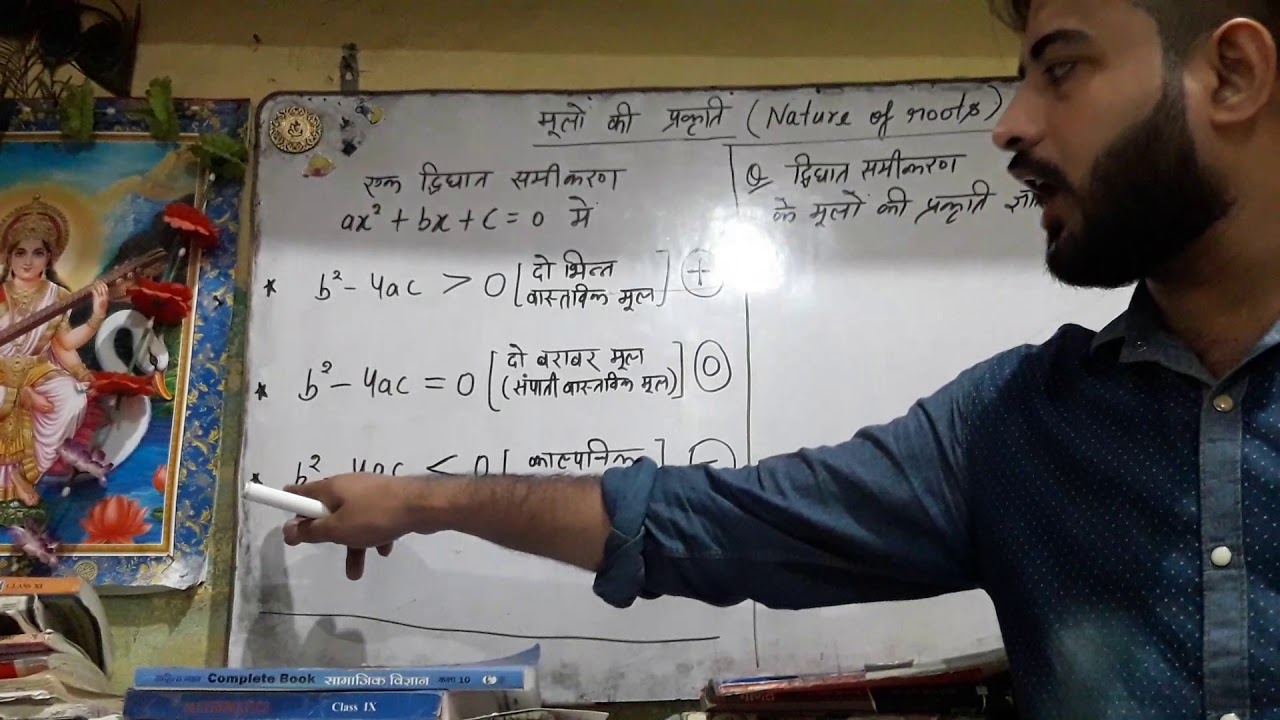 मूलों की प्रकृति (Nature of roots)
एक द्विघात समीकरण
ax² + bx + c = 0 में
* b² - 4ac > 0 [दो भिन्न
वास्तविक मूल] +
* b² - 4ac = 0 [दो बराबर मूल
(संपाती वास्तविक मूल)] 0
* b² - 4ac < 0 [काल्पनिक ] -
Q द्विघात समीकरण
के मूलों की प्रकृति
CLASS XI
Complete Book सामाजिक विज्ञान कक्षा 10
MATHEMATICS Class IX